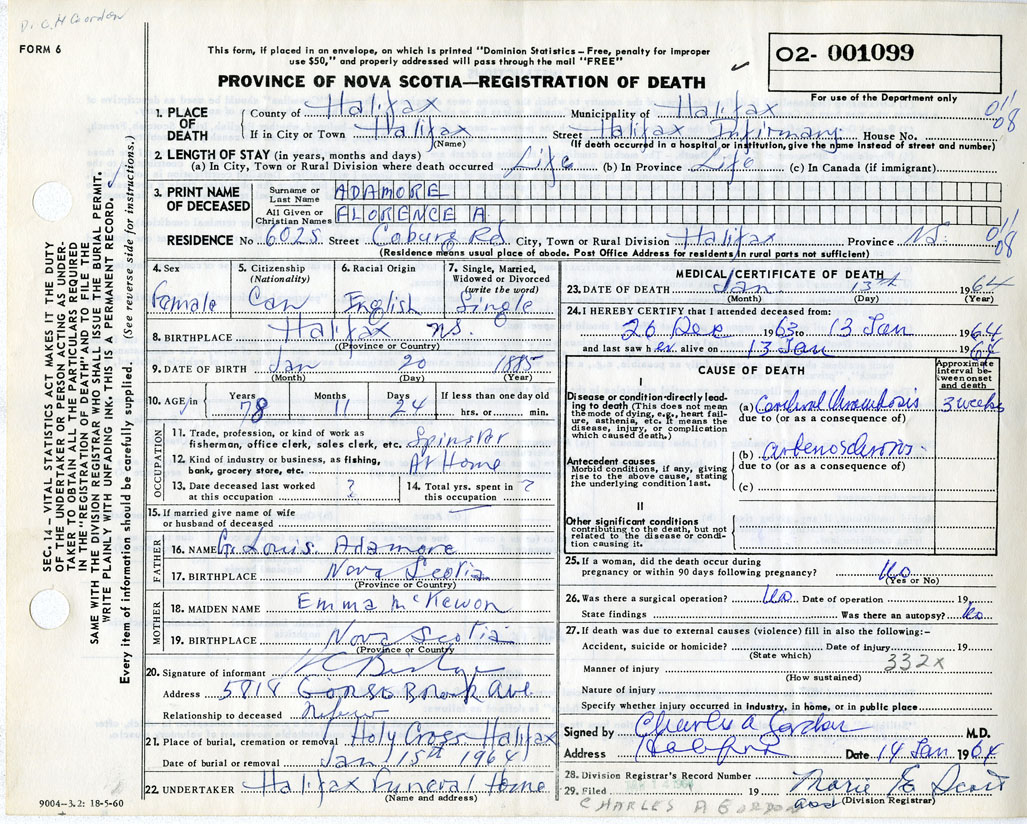 Dr. C. M. Gordon
FORM 6
This form, if placed in an envelope, on which is printed "Dominion Statistics – Free, penalty for improper
use $50," and properly addressed will pass through the mail "FREE"
PROVINCE OF NOVA SCOTIA—REGISTRATION OF DEATH
02- 001099
For use of the Department only
011
08
1. PLACE OF DEATH { County of Halifax Municipality of Halifax
If in City or Town Halifax (Name) Street Halifax Infirmary House No.
(If death occurred in a hospital or institution, give the name instead of street and number)
2. LENGTH OF STAY (in years, months and days)
(a) In City, Town or Rural Division where death occurred Life (b) In Province Life (c) In Canada (if immigrant)
3. PRINT NAME OF DECEASED { Surname or Last Name ADAMORE
All Given or Christian Names FLORENCE A
RESIDENCE No. 6025 Street Coburg Rd City, Town or Rural Division Halifax Province N.S.
(Residence means usual place of abode. Post Office Address for residents in rural parts not sufficient)
011
08
4. Sex
Female
5. Citizenship (Nationality)
Can
6. Racial Origin
English
7. Single, Married, Widowed or Divorced (write the word)
Single
8. BIRTHPLACE Halifax N.S.
(Province or Country)
9. DATE OF BIRTH Jan 20 1885
(Month) (Day) (Year)
10. AGE in Years 78 Months 11 Days 24 If less than one day old hrs. or min.
OCCUPATION
11. Trade, profession, or kind of work as
fisherman, office clerk, sales clerk, etc. Spinster
12. Kind of industry or business, as fishing,
bank, grocery store, etc. At Home
13. Date deceased last worked at this occupation ?
14. Total yrs. spent in this occupation ?
15. If married give name of wife
or husband of deceased
FATHER
16. NAME Louis Adamore
17. BIRTHPLACE Nova Scotia
(Province or Country)
MOTHER
18. MAIDEN NAME Emma McKewon
19. BIRTHPLACE Nova Scotia
(Province or Country)
20. Signature of informant
Address 5818 Ave.
Relationship to deceased Nephew
21. Place of burial, cremation or removal Holy Cross Halifax
Date of burial or removal Jan 15th 1964
22. UNDERTAKER Halifax Funeral Home
(Name and address)
MEDICAL CERTIFICATE OF DEATH
23. DATE OF DEATH Jan 13th 1964
(Month) (Day) (Year)
24. I HEREBY CERTIFY that I attended deceased from:
26 Dec 1963 to 13 Jan 1964
and last saw her alive on 13 Jan 1964
CAUSE OF DEATH
Approximate interval between onset and death
I
Disease or condition directly leading to death (This does not mean the mode of dying, e.g., heart failure, asthenia, etc. It means the disease, injury, or complication which caused death.)
(a) Cerebral Thrombosis 3 weeks
due to (or as a consequence of)
Antecedent causes
Morbid conditions, if any, giving rise to the above cause, stating the underlying condition last.
(b) arteriosclerosis
due to (or as a consequence of)
(c)
II
Other significant conditions
contributing to the death, but not related to the disease or condition causing it.
25. If a woman, did the death occur during
pregnancy or within 90 days following pregnancy? No
(Yes or No)
26. Was there a surgical operation? No Date of operation 19
State findings Was there an autopsy? No
27. If death was due to external causes (violence) fill in also the following:–
Accident, suicide or homicide? Date of injury 19
(State which)
Manner of injury 332X
(How sustained)
Nature of injury
Specify whether injury occurred in industry, in home, or in public place
Signed by Charles A Gordon M.D.
Address Halifax Date 14 Jan. 1964
28. Division Registrar's Record Number
29. Filed 19 Marie E Scott
(Division Registrar)
CHARLES A GORDON
SEC. 14 – VITAL STATISTICS ACT MAKES IT THE DUTY
OF THE UNDERTAKER OR PERSON ACTING AS UNDER-
TAKER TO OBTAIN ALL THE PARTICULARS REQUIRED
IN THE "REGISTRATION OF DEATH" AND TO FILE THE
SAME WITH THE DIVISION REGISTRAR WHO SHALL ISSUE THE BURIAL PERMIT.
WRITE PLAINLY WITH UNFADING INK. THIS IS A PERMANENT RECORD.
Every item of information should be carefully supplied. (See reverse side for instructions.)
9004—3.2: 18-5-60